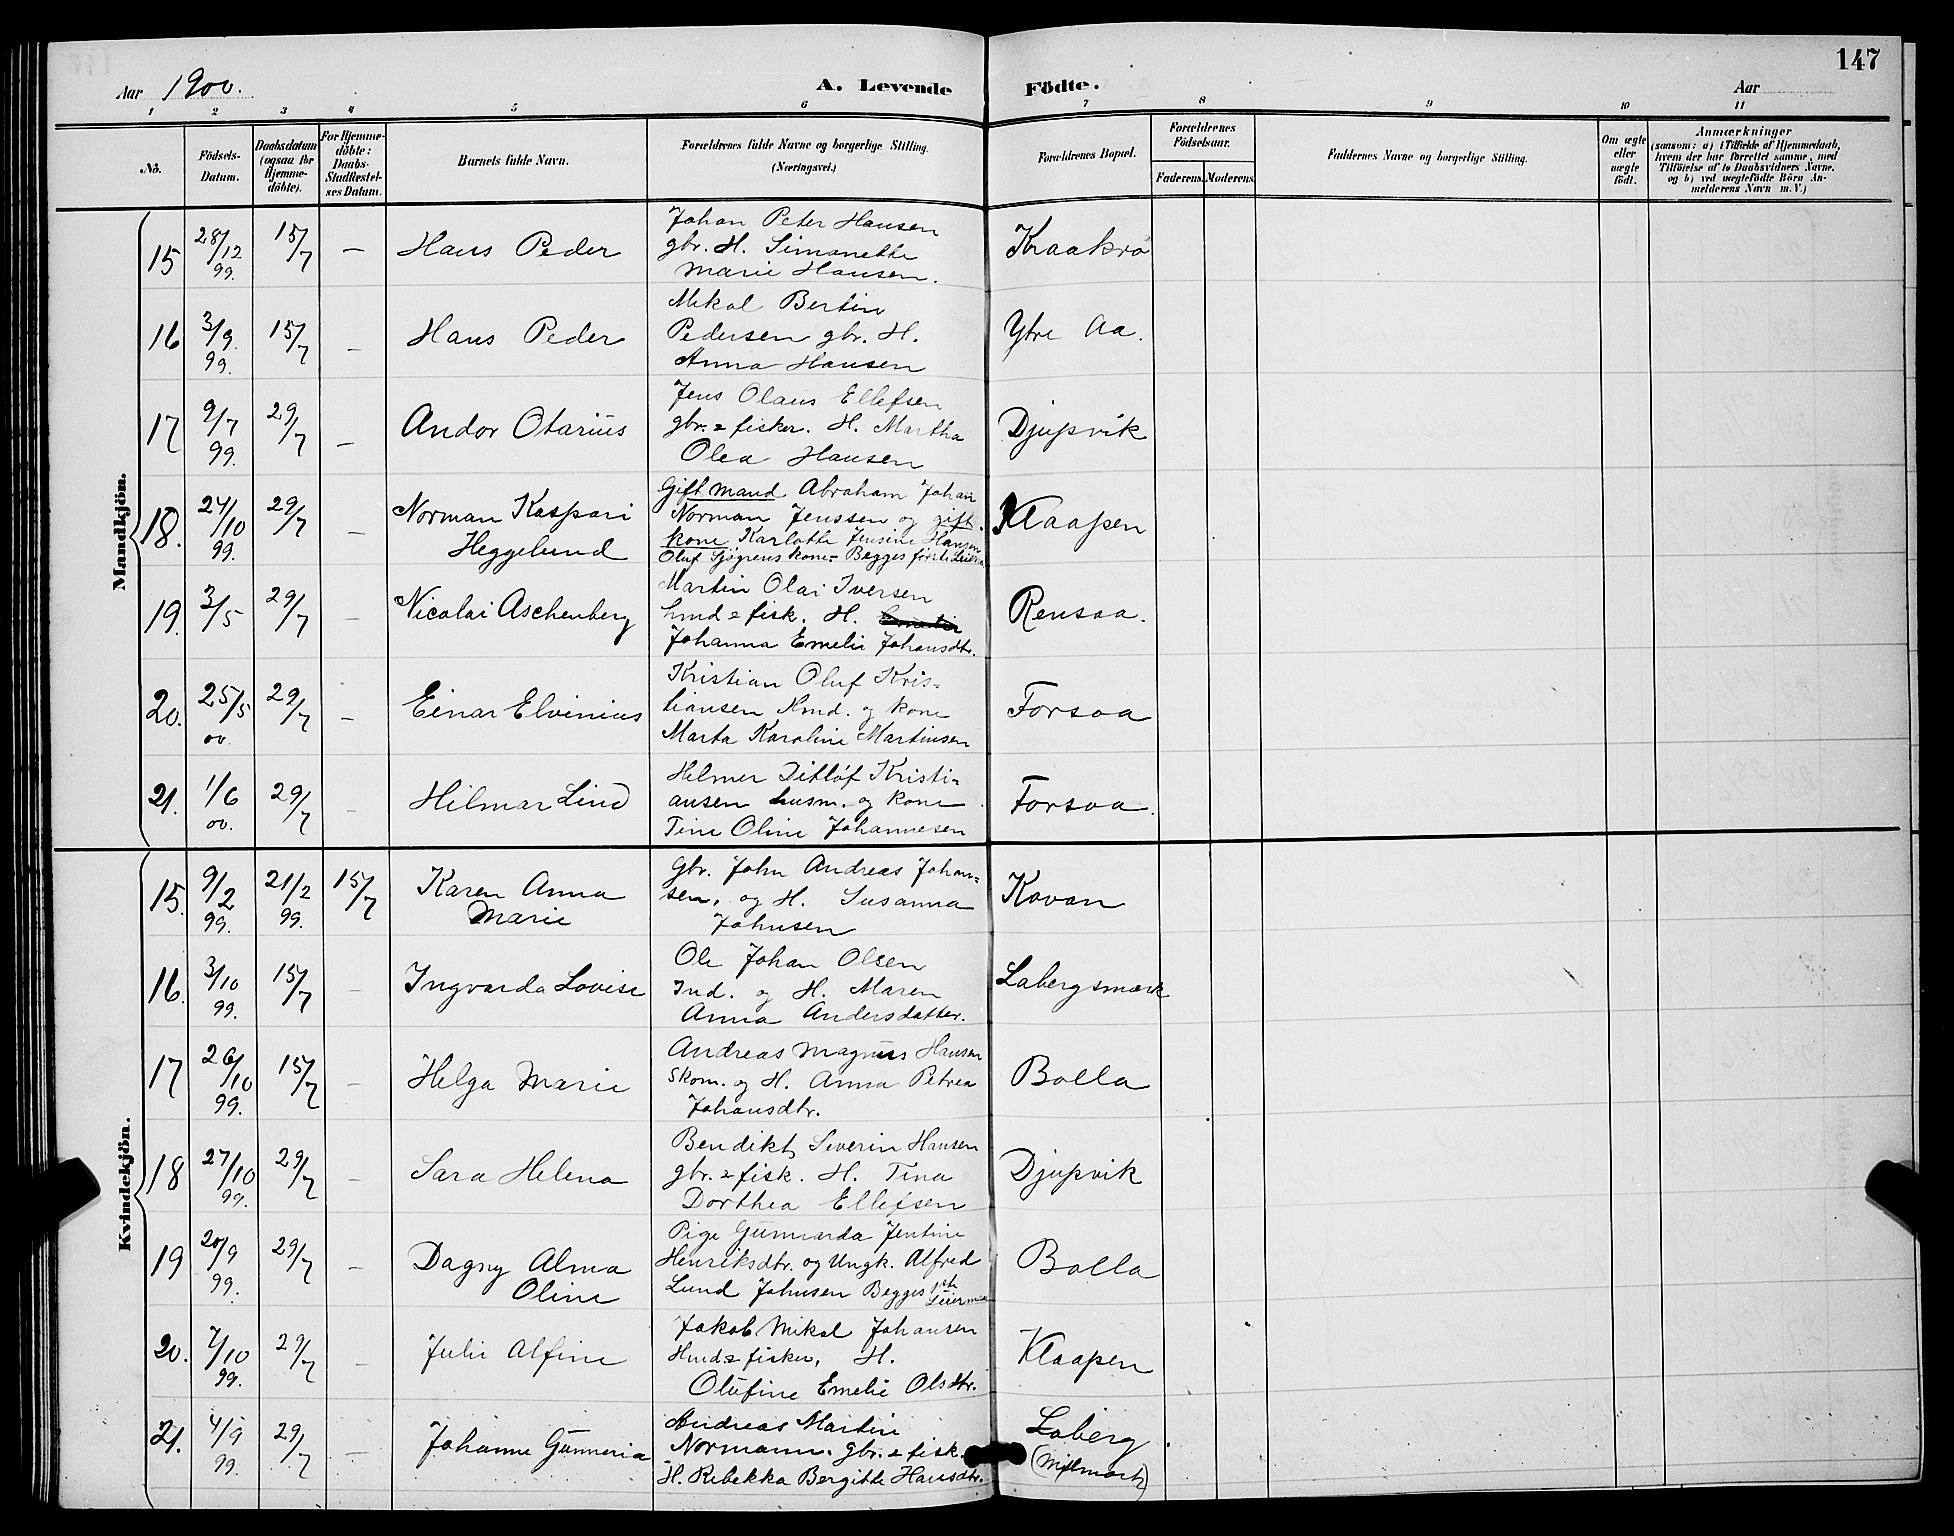 147
Aar 1900. A. Levende Födte. Aar
1 2 3 4 5 6 7 8 9 10 11
No.
Födsels-Datum.
Daabsdatum (ogsaa for Hjemmedöbte).
For Hjemmedöbte: Daabs-Stadfæstelses Datum.
Barnets fulde Navn.
Forældrenes fulde Navne og borgerlige Stilling. (Næringsvei.)
Forældrenes Bopæl.
Forældrenes Födselsaar.
Faderens. Moderens.
Faddernes Navne og borgerlige Stilling.
Om ægte eller uægte födt.
Anmærkninger
(saasom: a) i Tilfælde af Hjemmedaab,
hvem der har forrettet samme, med
Tilföielse af to Daabsvidners Navne,
og b) ved uægtefödte Börn An-
melderens Navn m. V.)
Mandkjön.
15 28/12 99. 15/7 — Hans Peder
Johan Peter Hansen
gbr. H. Simonette
Marie Hansen.
Kraakrø
16 3/9 99. 15/7 — Hans Peder
Mikal Bertin
Pedersen gbr. H.
Anna Hansen
Ytre Aa.
17 9/7 99. 29/7 — Andor Otarius
Jens Olaus Ellefsen
gbr. & fisker. H. Martha
Olea Hansen
Djupvik
18. 24/10 99. 29/7 — Norman Kaspari
Heggelund
Gift mand Abraham Johan
Norman Jenssen og gift
kone Karlotte Jensine Hansen
Oluf Sjøgrens kone - Begges første Leierm
Klaapen
19. 3/5 29/7 — Nicolai Aschenberg
Martin Olai Iversen
hmd & fisk. H.
Johanna Emelie Johansdtr.
Rensaa.
20. 25/5 00. 29/7 — Einar Elvinius
Kristian Oluf Kris-
tiansen Hmd. og kone
Marta Karoline Martinsen
Forsaa
21. 1/6 00. 29/7 — Hilmar Lind
Helmer Ditløf Kristi-
ansen husm. og kone
Tine Oline Johannesen
Forsaa.
Kvindekjön.
15. 9/2 99. 21/2 99. 15/7 Karen Anna
Marie
Gbr. John Andreas Johan-
sen, og H. Susanna
Johnsen
Kovan
16. 3/10 99. 15/7 — Ingvarda Lovise
Ole Johan Olsen
Ind. og H. Maren
Anna Andersdatter.
Labergsmark
17 26/10 99. 15/7 — Helga Marie
Andreas Magnus Hansen
Skom. og H. Anna Petrea
Johansdtr.
Bolla
18 27/10 99. 29/7 — Sara Helena
Bendikt Severin Hansen
gbr. & fisk. H. Tina
Dorthea Ellefsen
Djupvik
19 20/9 99. 29/7 — Dagny Alma
Oline
Pige Gunnarda Jentine
Henriksdtr. og Ungk. Alfred
Lund Johnsen Begges 1ste Leiermaal
Bolla
20. 7/10 99. 29/7 — Julie Alfine
Jakob Mikal Johansen
Hmd & fisker, H.
Olufine Emelie Olsdtr.
Klaapen
21. 4/9 99. 29/7 — Johanne Gunneria
Andreas Martin
Normann. gbr. & fisk.
H. Rebekka Bergitte Hansdtr.
Laberg